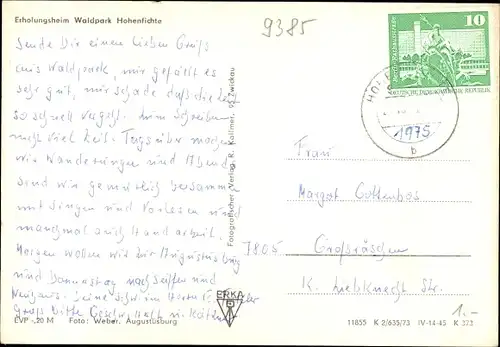 Erholungsheim Waldpark Hohenfichte
9385
Sende Dir einen lieben Gruß
aus Waldpark, mir gefällt es
sehr gut, nur schade daß die Zeit
so schnell vergeht. Zum Schreiben
nicht viel Zeit. Tagsüber machen
wir Wanderungen und Abend
sind wir gemütlich beisammen
mit Singen und Vorlesen und
manchmal auch Handarbeit.
Morgen wollen wir zur Augustusburg
und Donnerstag nach Seiffen und
Neuhaus.
Gruß bitte
EVP -,20 M Foto: Weber, Augustusburg
Fotografischer Verlag R. Kallmer, 95 Zwickau
ERKA
10
DEUTSCHE DEMOKRATISCHE REPUBLIK
1975
b
Frau
Margot Cottenbos
7805 Großräschen
K. Liebknecht Str.
1.-
11855 K 2/635/73 IV-14-45 K 373